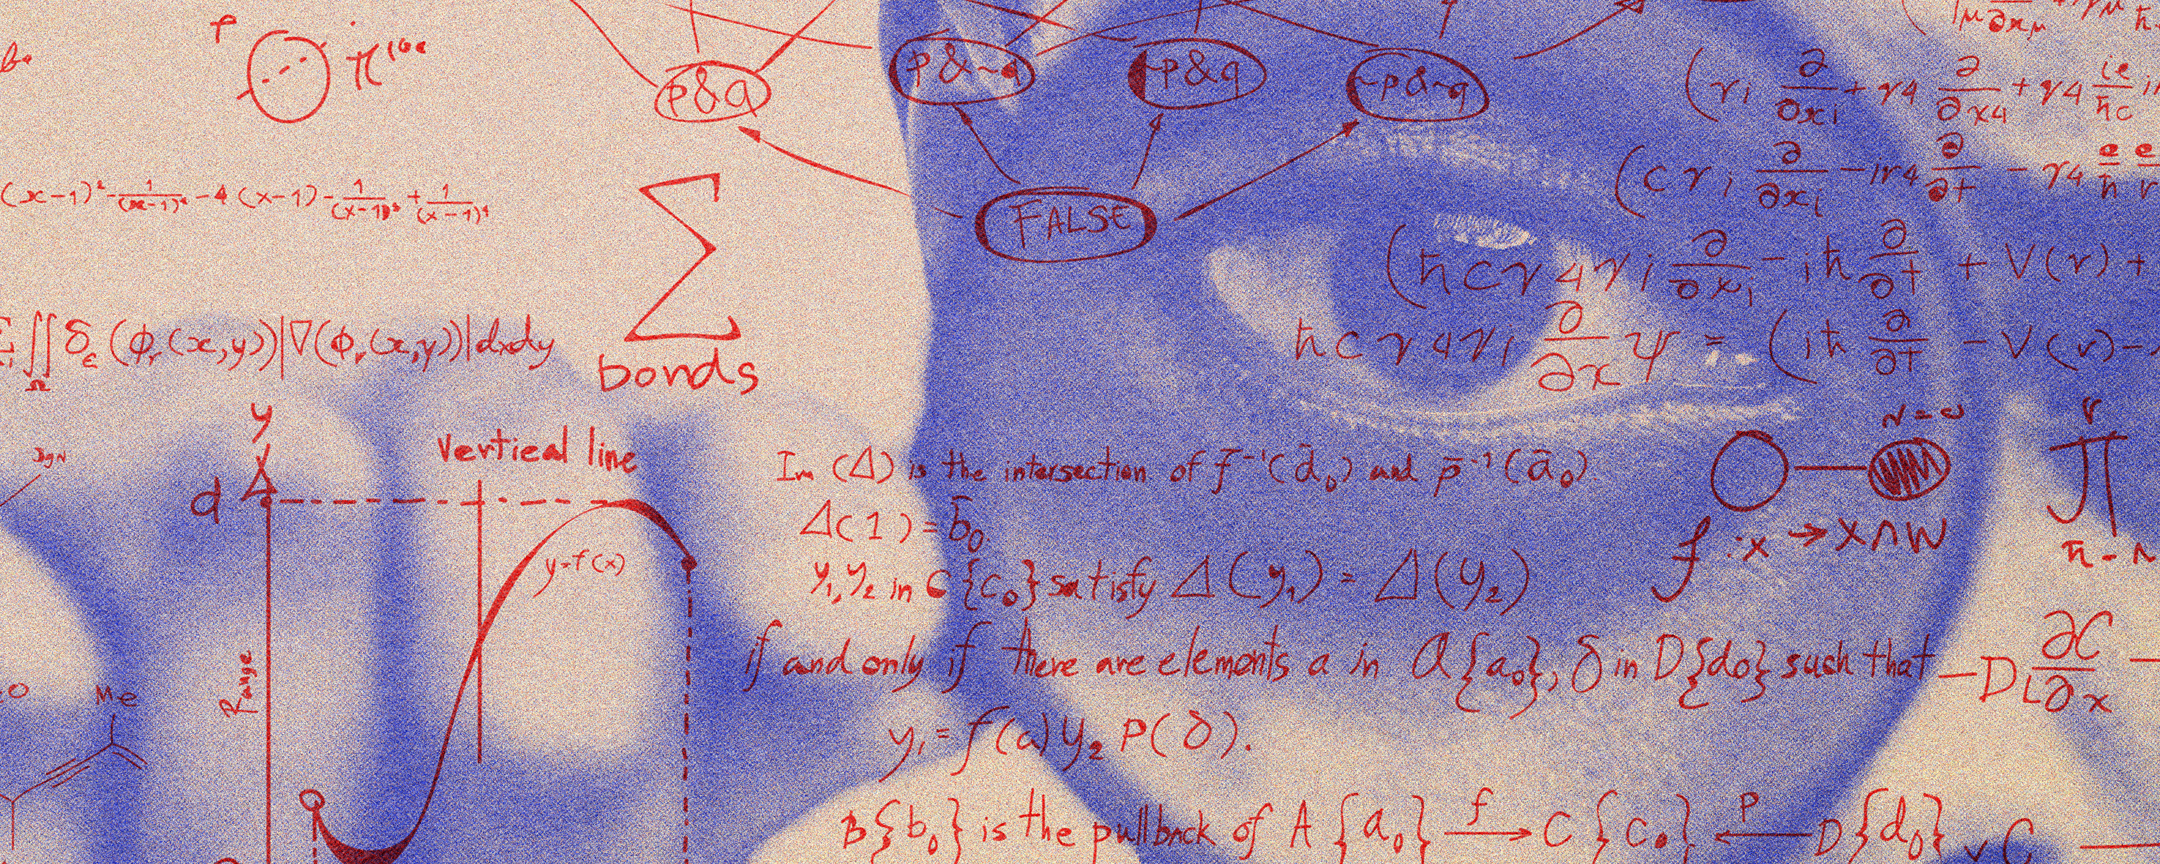 p&q
p&~q
~p&q
~p&~q
FALSE
(x-1)² - 1/(x-1)⁴ - 4(x-1) - 1/(x-1)³ + 1/(x-1)⁴
∬ δε(φr(x,y))|∇(φr(x,y))|dxdy
∑
bonds
(γi ∂/∂xi + γ4 ∂/∂x4 + γ4 ie/ħc
(cγi ∂/∂xi - iγ4 ∂/∂t - γ4 e/ħ
(ħcγ4γi ∂/∂xi - iħ ∂/∂t + V(r) +
ħcγ4γi ∂/∂x ψ = (iħ ∂/∂t - V(r) -
y
d
vertical line
y=f(x)
Range
Me
Im (Δ) is the intersection of f̄⁻¹(d̄₀) and p̄⁻¹(ā₀).
Δ(1) = b̄₀
y₁, y₂ in C{c₀} satisfy Δ(y₁) = Δ(y₂)
if and only if there are elements a in A{a₀}, δ in D{d₀} such that
y₁ = f(a) y₂ P(δ).
B{b₀} is the pullback of A{a₀} →f C{c₀} ←p D{d₀}
f : x → X∩W
∏
-DL ∂C/∂x